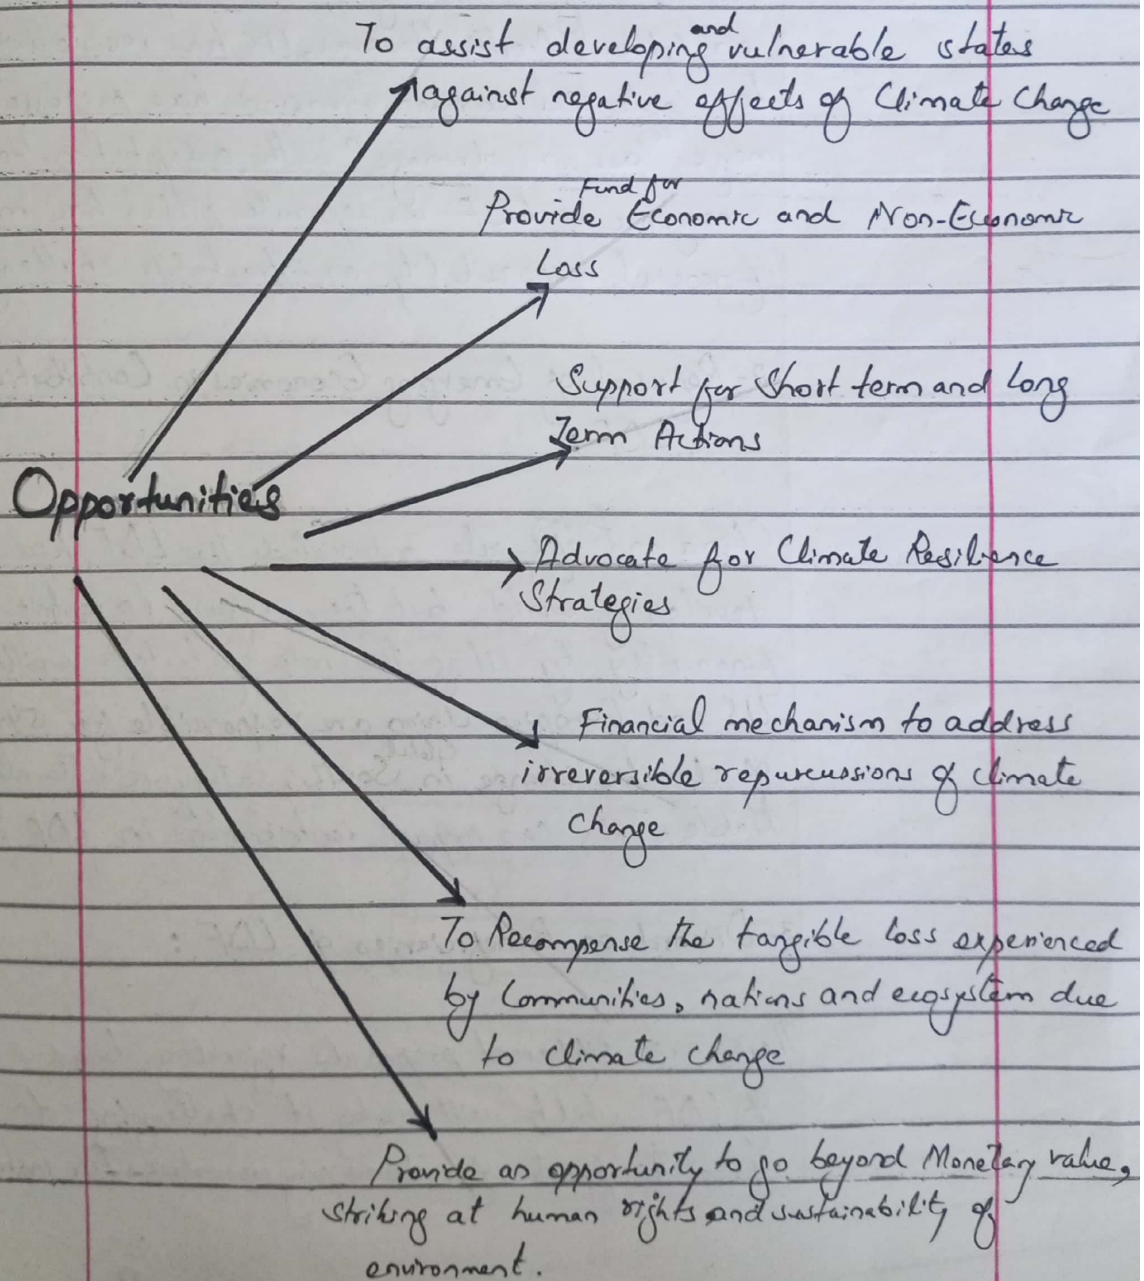 To assist developing and vulnerable states
against negative effects of Climate Change
Provide Fund for Economic and Non-Economic
Loss
Support for Short term and Long
Term Actions
Opportunities
Advocate for Climate Resilience
Strategies
Financial mechanism to address
irreversible repurcussions of climate
change
To Recompense the tangible loss experienced
by Communities, nations and ecosystem due
to climate change
Provide an opportunity to go beyond Monetary value,
striking at human rights and sustainability of
environment.